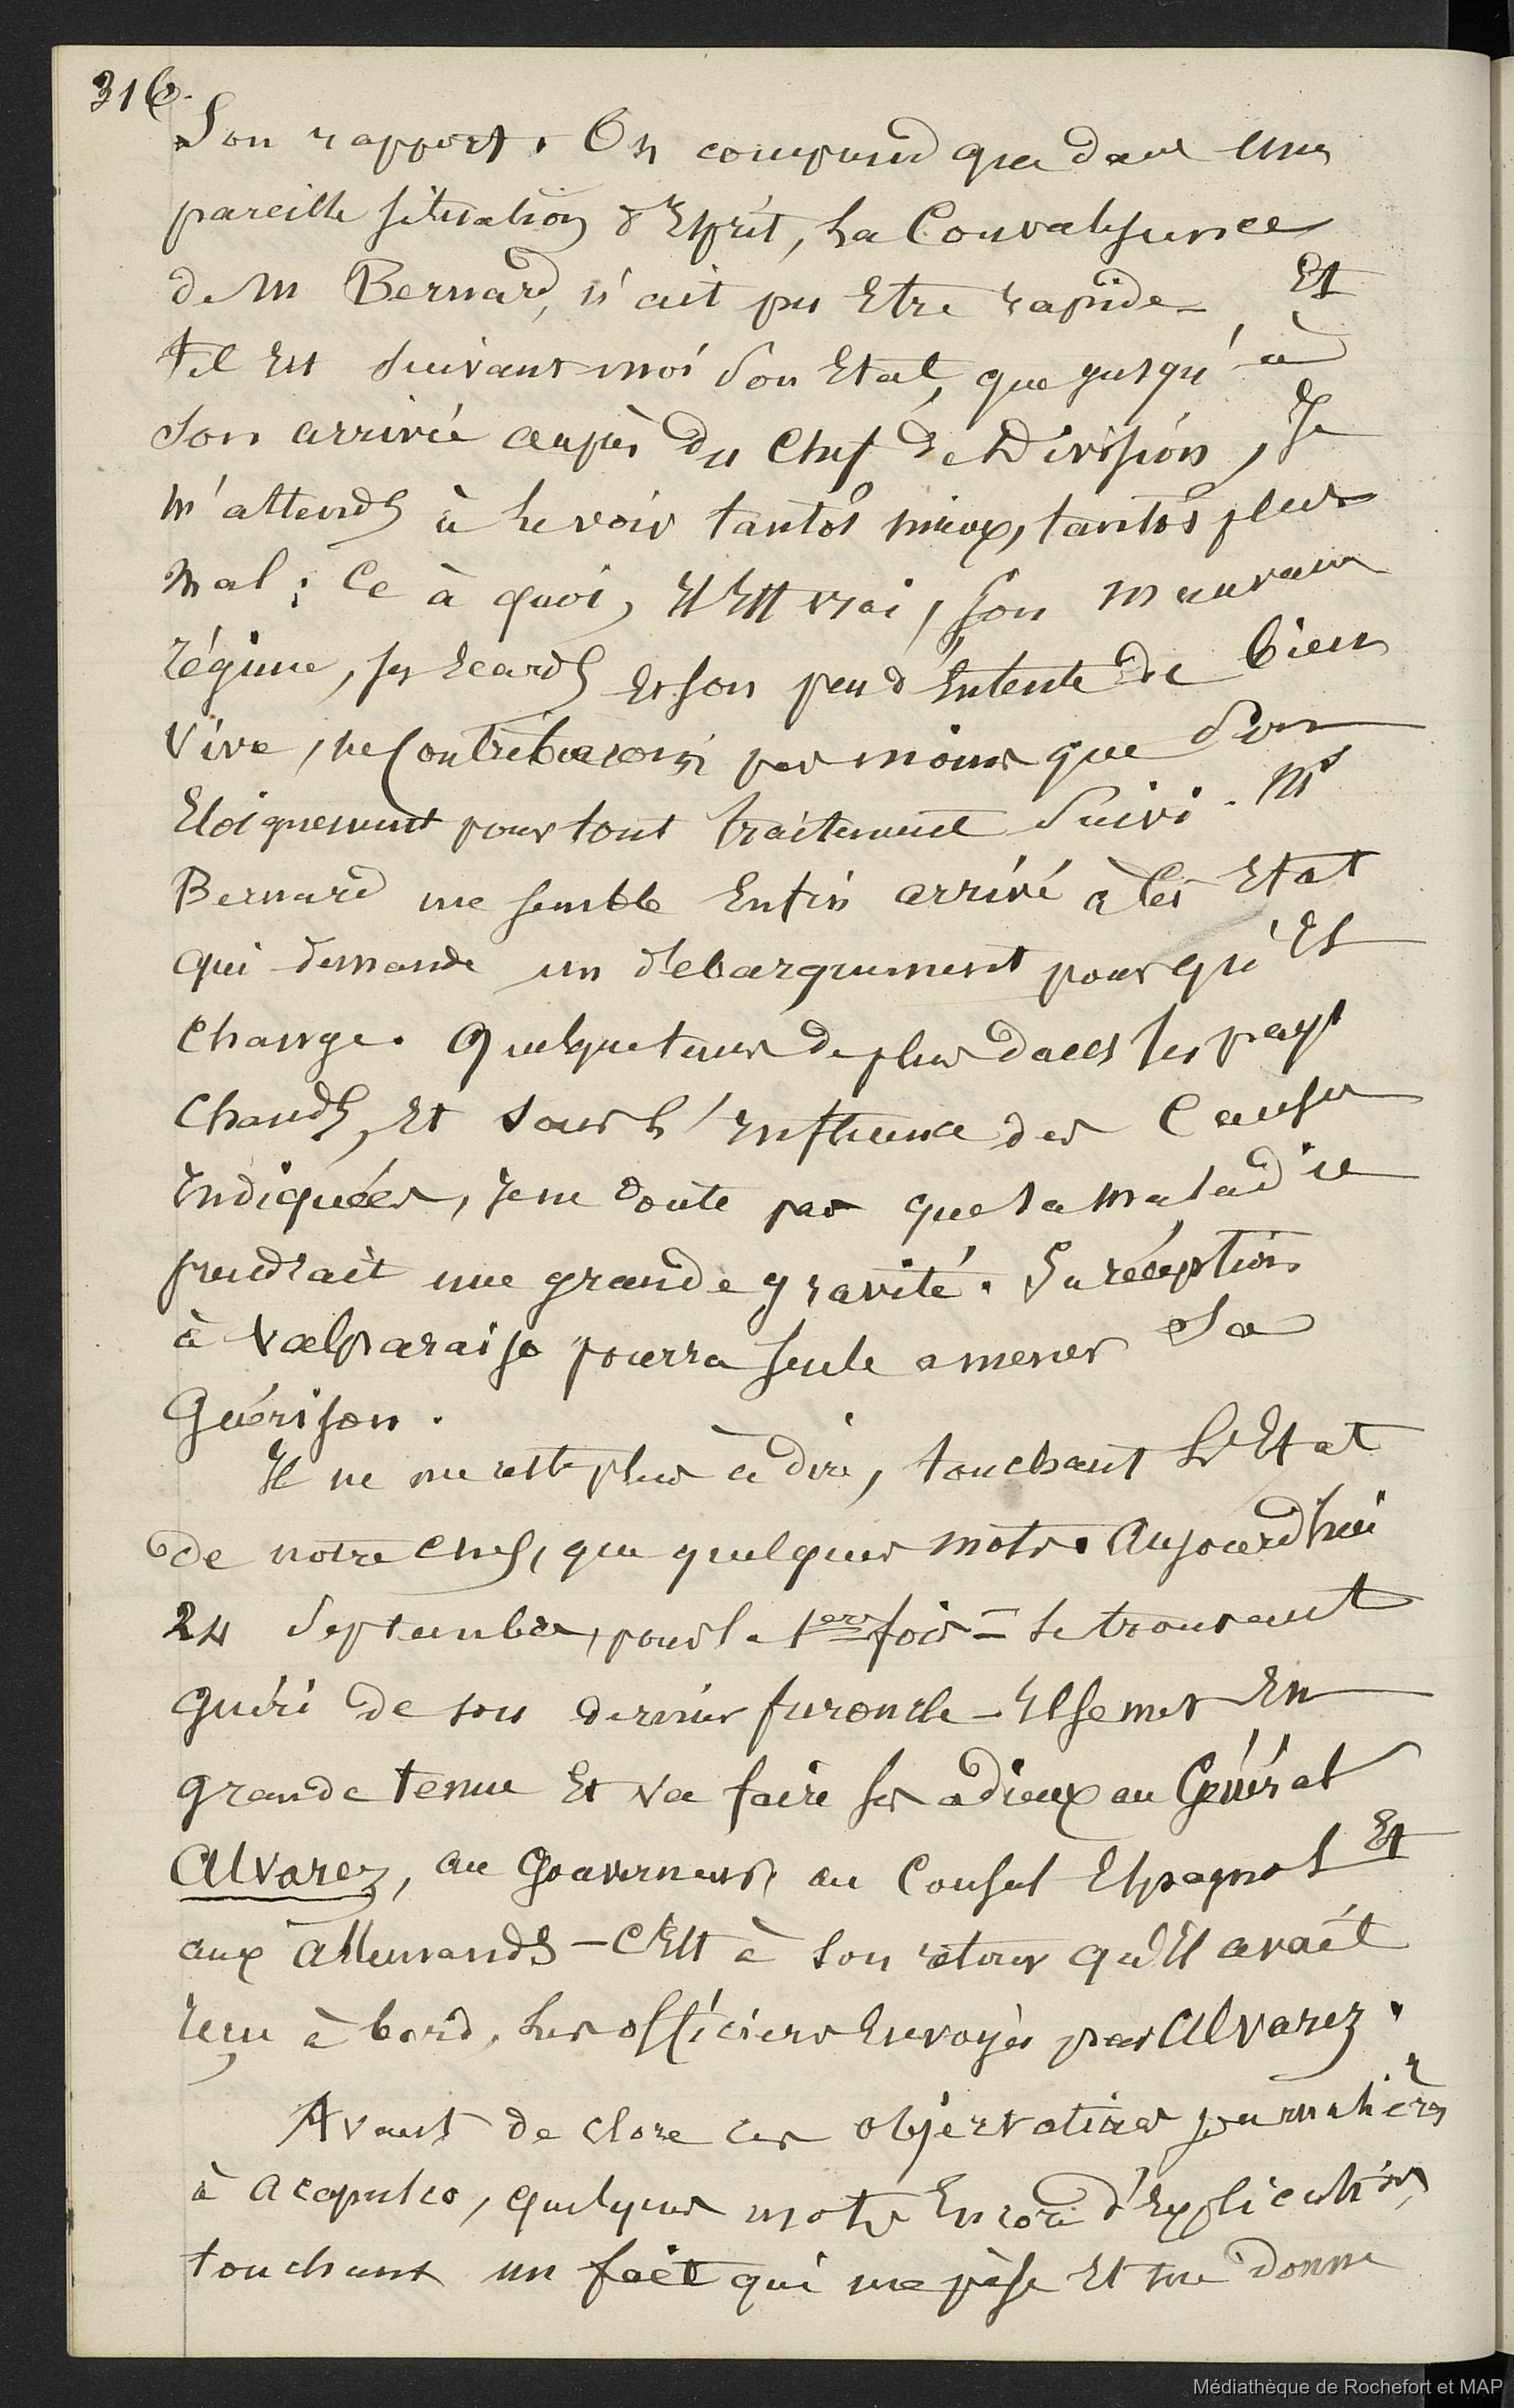 316.
Son rapport. On comprend que dans une
pareille situation d'Esprit, la Convalescence
de M Bernard, n'ait pu Etre rapide - Et
tel Est suivant moi son Etat, que jusqu'à
son arrivée auprès du Chef de Division, Je
m'attends à le voir tantôt mieux, tantôt plus
mal ; Ce à quoi, Il Est vrai, son mauvais
régime, ses Ecards Et son peu d'Entente de bien
vivre, ne Contribueront pas moins que son
Eloignement pour tout traitement suivi. Mr
Bernard me semble Enfin arrivé à cet Etat
qui demande un débarquement pour qu'Il
Change. Quelque tems de plus dans les pays
Chauds, Et sous l'Influence des Causes
Indiquées, Je ne doute pas que sa maladie
prendrait une grande gravité. Sa réception
à Valparaiso pourra seule amener Sa
Guérison.
Il ne me reste plus à dire, touchant l'Etat
de notre chef, que quelques mots. Aujourd'hui
24 Septembre, pour la 1ere fois - se trouvant
guéri de son dernier furoncle - Il se met En
grande tenue Et va faire ses adieux au Général
Alvarez, au Gouverneur, au Consul Espagnol Et
aux allemands - C'Est à son retour qu'Il avait
reçu à bord, les officiers Envoyés par Alvarez.
Avant de clore ces observations journalières
à Acapulco, quelques mots Encore d'Explication,
touchant un fait qui me pèse Et me donne
Médiathèque de Rochefort et MAP